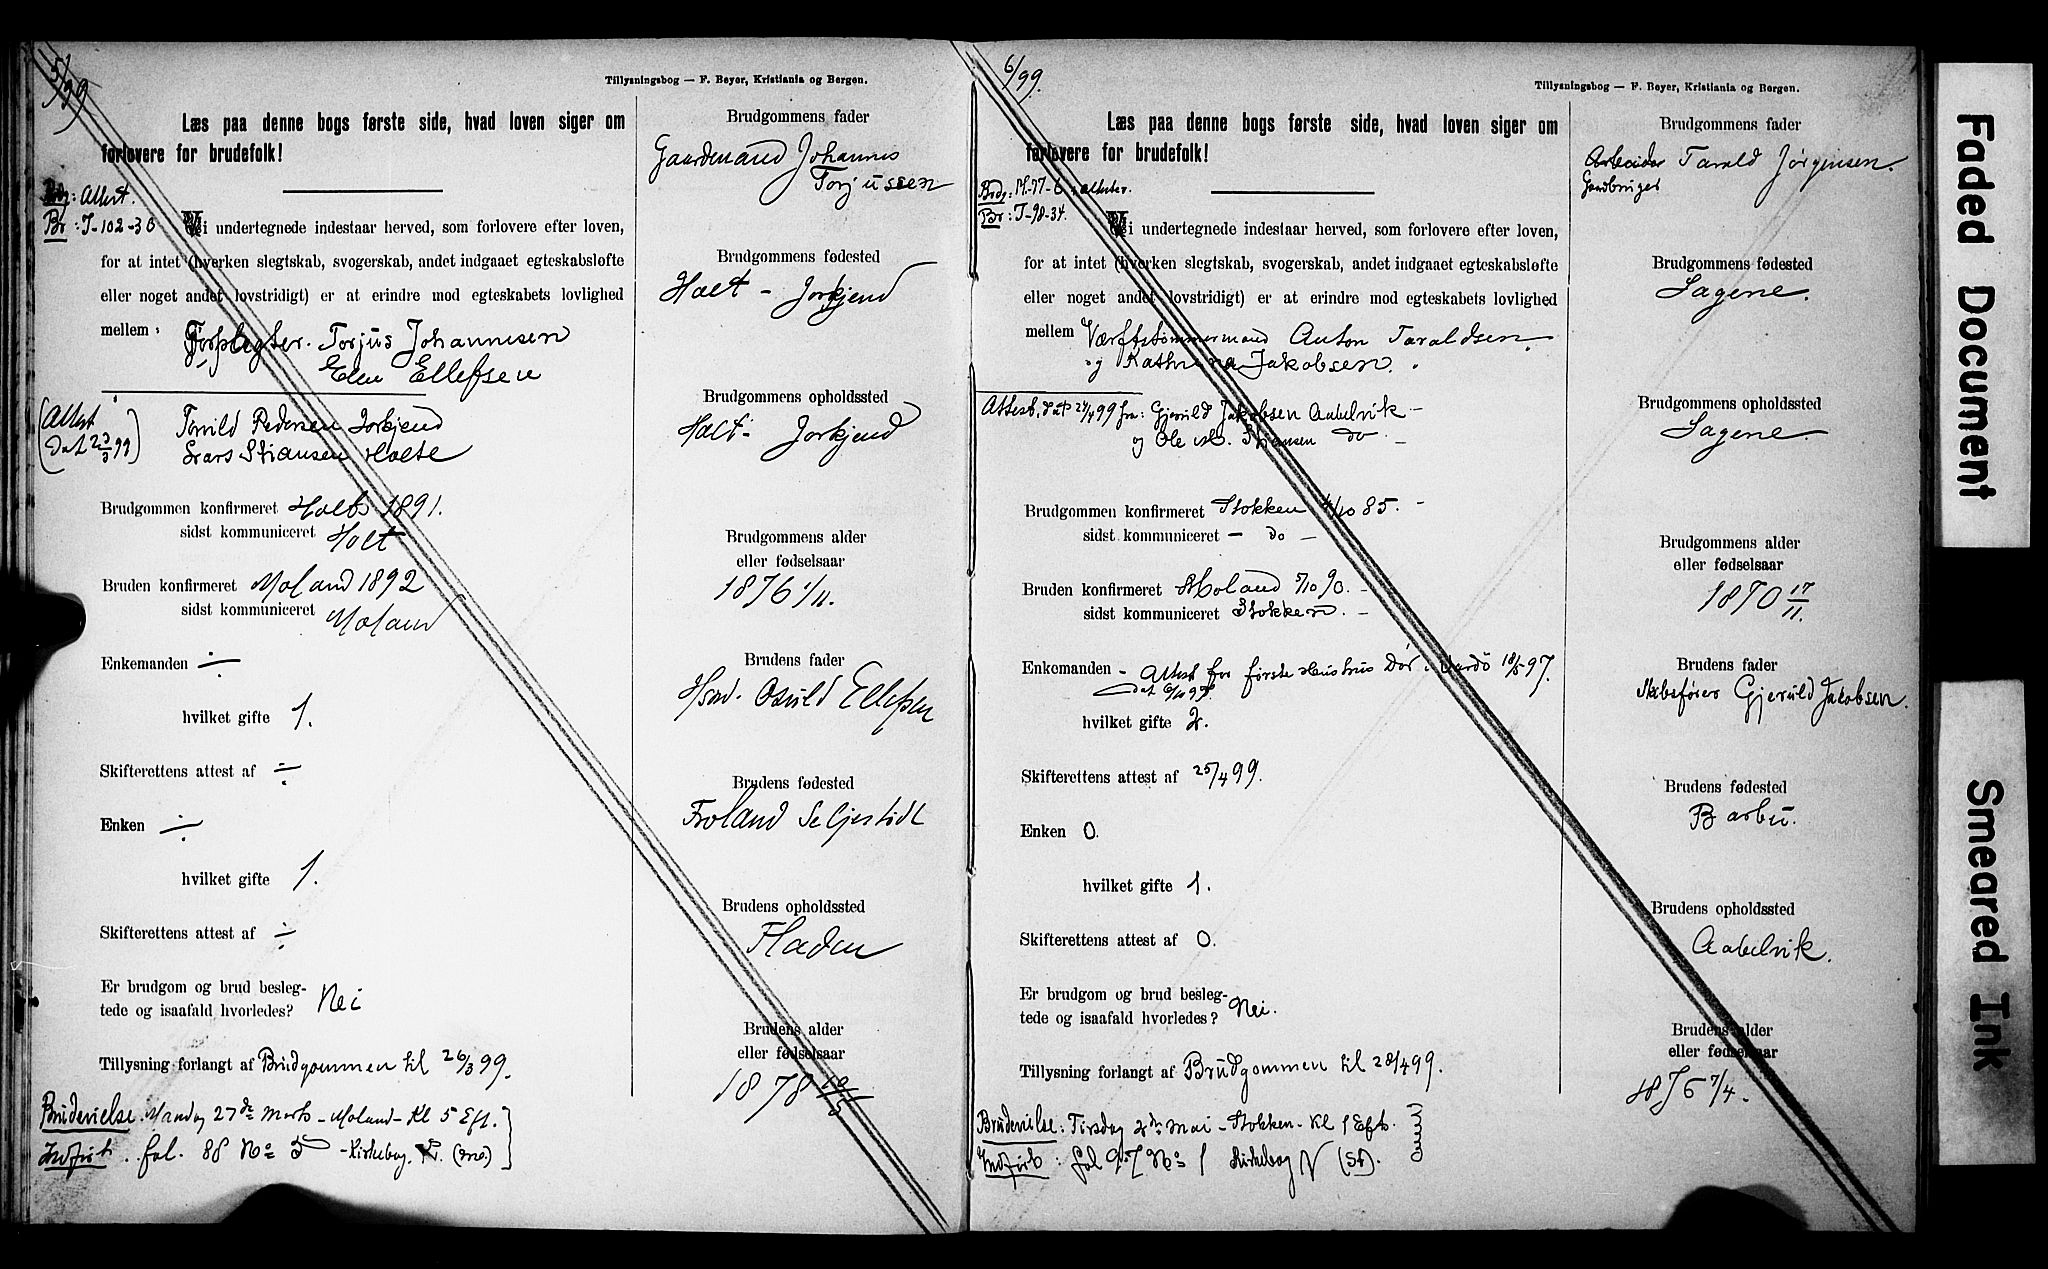 5/99
Tillysningsbog — F. Beyer, Kristiania og Bergen.
Læs paa denne bogs første side, hvad loven siger om
forlovere for brudefolk!
Brdg: Attest.
Br: I-102-36
Vi undertegnede indestaar herved, som forlovere efter loven,
for at intet (hverken slegtskab, svogerskab, andet indgaaet egteskabsløfte
eller noget andet lovstridigt) er at erindre mod egteskabets lovlighed
mellem Torjus Johannesen
Ellen Ellefsen
(Attest
Dat 23/3 99)
Torvild Pedersen Jorkjend
Lars Stiansen Holte
Brudgommen konfirmeret Holt 1891.
sidst kommuniceret Holt
Bruden konfirmeret Moland 1892
sidst kommuniceret Moland
Enkemanden ÷
hvilket gifte 1.
Skifterettens attest af ÷
Enken ÷
hvilket gifte 1.
Skifterettens attest af ÷
Er brudgom og brud besleg-
tede og isaafald hvorledes? Nei
Tillysning forlangt af Brudgommen til 26/3 99.
Brudevielse Mandag 27de Marts - Moland - Kl 5 Eft.
Indført. fol. 88 No 5 - Kirkebog. (Mo.)
Brudgommens fader
Gaardmand Johannes
Torjussen
Brudgommens fødested
Holt - Jorkjend
Brudgommens opholdssted
Holt - Jorkjend
Brudgommens alder
eller fødselsaar
1876 1/11.
Brudens fader
Hsmd. Osuld Ellefsen
Brudens fødested
Froland Seljestadt
Brudens opholdssted
Fladen
Brudens alder
eller fødselsaar
1878 10/5
6/99.
Tillysningsbog — F. Beyer, Kristiania og Bergen.
Læs paa denne bogs første side, hvad loven siger om
forlovere for brudefolk!
Brdg: M-77-6; attester.
Br: I-98-34.
Vi undertegnede indestaar herved, som forlovere efter loven,
for at intet (hverken slegtskab, svogerskab, andet indgaaet egteskabsløfte
eller noget andet lovstridigt) er at erindre mod egteskabets lovlighed
mellem Værftstømmermand Anton Taraldsen
og Kathrina Jakobsen.
Attest, dat 24/4 99 fra: Gjeruld Jakobsen Aabelvik -
og Ole M. Stiansen do -
Brudgommen konfirmeret Stokken 4/10 85. -
sidst kommuniceret - do -
Bruden konfirmeret Moland 5/10 90. -
sidst kommuniceret Stokken. -
Enkemanden - Attest for første Hustrus Død i Vardö 18/5 97.
hvilket gifte 2.
Skifterettens attest af 25/4 99.
Enken 0.
hvilket gifte 1.
Skifterettens attest af 0.
Er brudgom og brud besleg-
tede og isaafald hvorledes? Nei.
Tillysning forlangt af Brudgommen til 28/4 99.
Brudevielse: Tirsdag 2den Mai - Stokken - Kl 1 Eft.
Indført: fol 97 No 1 Kirkebog V (St).
Brudgommens fader
Arbeider Tarald Jørgensen
Gaardbruger
Brudgommens fødested
Sagene.
Brudgommens opholdssted
Sagene.
Brudgommens alder
eller fødselsaar
1870 17/11.
Brudens fader
Skibsfører Gjeruld Jakobsen.
Brudens fødested
Barbu.
Brudens opholdssted
Aabelvik.
Brudens alder
eller fødselsaar
1876 7/4.
Faded Document
Smeared Ink